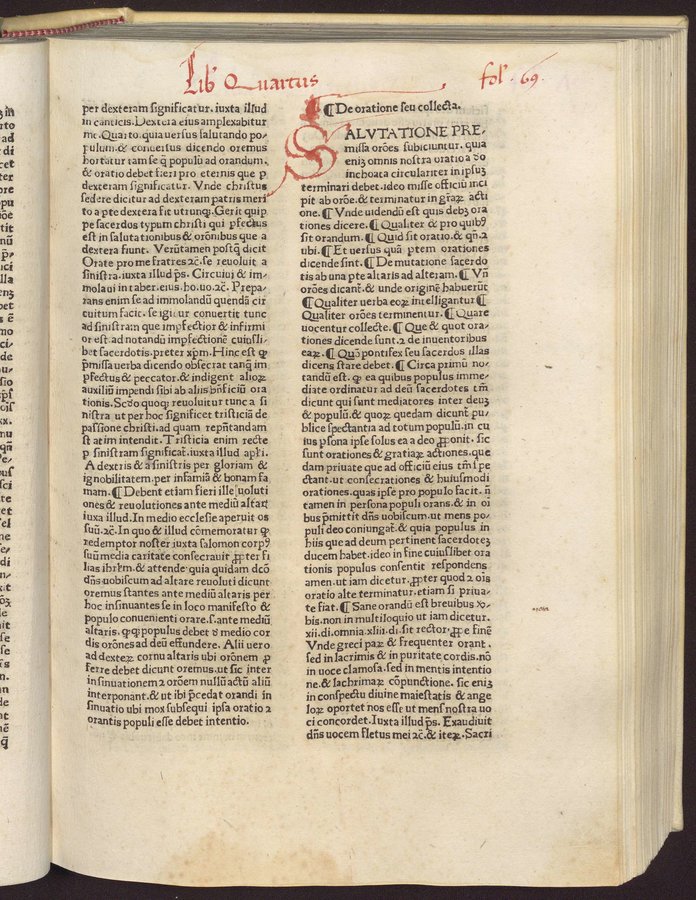 Lib Quartus
fol. 69.
per dexteram significatur. iuxta illud
in canticis. Dextera eius amplexabitur
me. Quarto. quia uersus salutando po⸗
pulum. & conuersus dicendo oremus
hortatur tam se ꝙ populū ad orandum.
& oratio debet fieri pro eternis que ꝑ
dexteram significatur. Vnde christus
sedere dicitur ad dexteram patris meri
to a pte dextera fit utrunq;. Gerit quip
pe sacerdos typum christi qui ꝑfectus
est in salutationibus & orōnibus que a
dextera fiunt. Verūtamen postq̄ dicit
Orate pro me fratres ⁊c̄. se reuoluit a
sinistra. iuxta illud ps̄. Circuiui & im⸗
molaui in taber. eius. ho. uo. ⁊c̄. Prepa⸗
rans enim se ad immolandū quendā cir
cuitum facit. se igitur conuertit tunc
ad sinistram que impfectior & infirmi
or est. ad notandū impfectionē cuiusli⸗
bet sacerdotis. preter xp̄m. Hinc est ꝙ
p̄missa uerba dicendo obsecrat tanq̄ im
pfectus & peccator. & indigent alioꝝ
auxiliū impendi sibi ab aliis bn̄ficiū ora
tionis. Scd̄o quoq; reuoluitur tunc a si
nistra ut per hoc significet tristiciā de
passione christi. ad quam rep̄ntandam
st at im intendit. Tristicia enim recte
p sinistram significat̄. iuxta illud apl̄i.
A dextris & a sinistris per gloriam &
ignobilitatem. per infamiā & bonam fa
mam. ¶ Debent etiam fieri ille uoluti
ones & reuolutiones ante mediū altar̄
iuxa illud. In medio ecclesie aperuit os
suū. ⁊c̄. In quo & illud cōmemoratur ꝙ
redemptor noster iuxta salomon corpꝰ
suū media caritate consecrauit ꝓpter fi
lias ihrl̄m. & attende quia quidam dcō
dn̄s uobiscum ad altare reuoluti dicunt
oremus stantes ante mediū altaris per
hoc insinuantes se in loco manifesto &
populo conuenienti orare. s. ante mediū
altaris. ꝙꝙ populus debet ꝺ medio cor
dis orōnes ad deū effundere. Alii uero
ad dexteꝝ cornu altaris ubi orōnem ꝓ
ferre debet dicunt oremus. ut sic inter
insinuationem ⁊ orōem nullū actū aliū
interponant. & ut ibi p̄cedat orandi in
sinuatio ubi mox subsequi ipsa oratio ⁊
orantis populi esse debet intentio.
¶ De oratione seu collecta.
SALVTATIONE PRE⸗
missa orōes subiciuntur. quia
eniȝ omnis nostra oratio a ꝺo
inchoata circulariter in ipsuȝ
terminari debet. ideo misse officiū inci
pit ab orōe. & terminatur in graꝝ acti
one. ¶ Vnde uidendū est quis debȝ ora
tiones dicere. ¶ Qualiter & pro quibꝰ
sit orandum. ¶ Quid sit oratio. & qn̄. ⁊
ubi. ¶ Et uersus quā ptem orationes
dicende sint. ¶ De mutatione sacerdo
tis ab una pte altaris ad alteram. ¶ Vn̄
orōes dicant̄. & unde originē habuerūt
¶ Qualiter uerba eoꝝ intelligantur ¶
Qualiter orōes terminentur. ¶ Quare
uocentur collecte. ¶ Que & quot ora⸗
tiones dicende sunt. ⁊ de inuentoribus
eaꝝ. ¶ Quō pontifex seu sacerdos illas
dicens stare debet. ¶ Circa primū no⸗
tandū est. ꝙ ea quibus populus imme⸗
diate ordinatur ad deū sacerdotes tm̄
dicunt qui sunt mediatores inter deuȝ
& populū. & quoꝝ quedam dicunt̄ pu⸗
blice spectantia ad totum populū. in cu
ius psona ipse solus ea a deo ꝓponit. sic
sunt orationes & gratiaꝝ actiones. que
dam priuate que ad officiū eius tm̄ spe
ctant. ut consecrationes & huiusmodi
orationes. quas ipse pro populo facit. n̄
tamen in persona populi orans. & in oī
bus p̄mittit dn̄s uobiscum. ut mens po⸗
puli deo coniungat̄. & quia populus in
hiis que ad deum pertinent sacerdoteȝ
ducem habet. ideo in fine cuiuslibet ora
tionis populus consentit respondens
amen. ut iam dicetur. ꝓpter quod ⁊ oīs
oratio alte terminatur. etiam si priua⸗
te fiat. ¶ Sane orandū est breuibus ꝟo⸗
bis. non in multiloquio ut iam dicetur.
xii. di. omnia. xliii. di. sit rector. ꝓpe finē
Vnde greci paꝝ & frequenter orant.
sed in lacrimis & in puritate cordis. nō
in uoce clamosa. sed in mentis intentio
ne. & lachrimaꝝ cōpunctione. sic eniȝ
in conspectu diuine maiestatis & ange
loꝝ oportet nos esse ut mens nostra uo
ci concordet. Iuxta illud ps̄. Exaudiuit
dn̄s uocem fletus mei ⁊c̄. & iteꝝ. Sacri